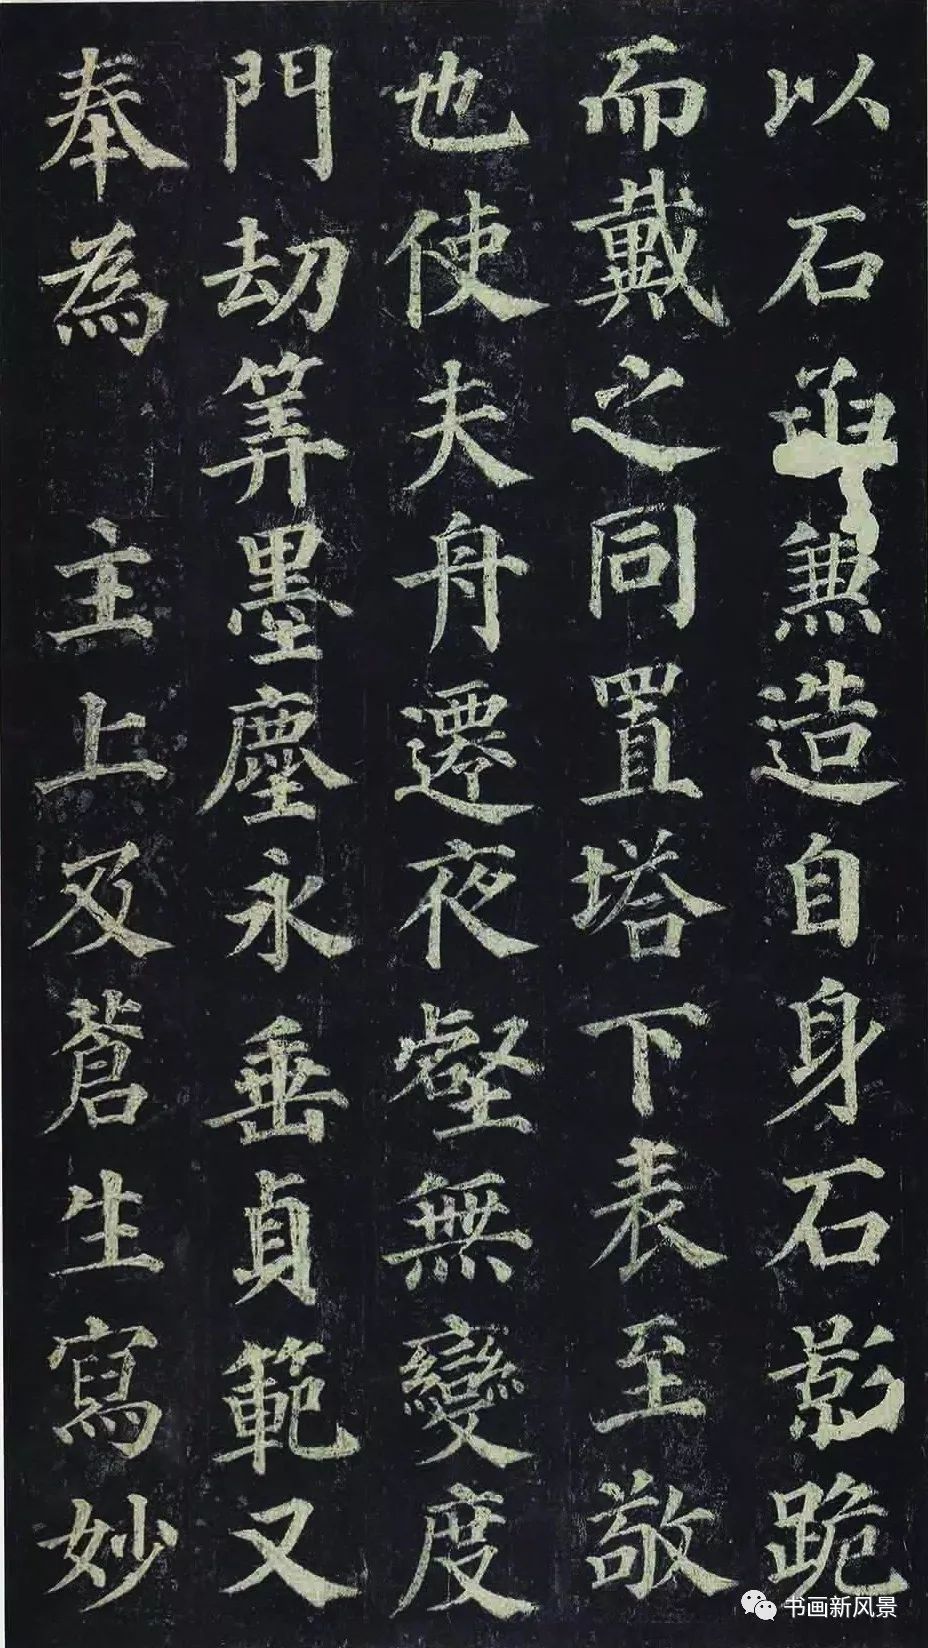 以石函兼造自身石影跪
而戴之同置塔下表至敬
也使夫舟遷夜壑無變度
門劫筭墨塵永垂貞範又
奉為主上及蒼生寫妙
书画新风景